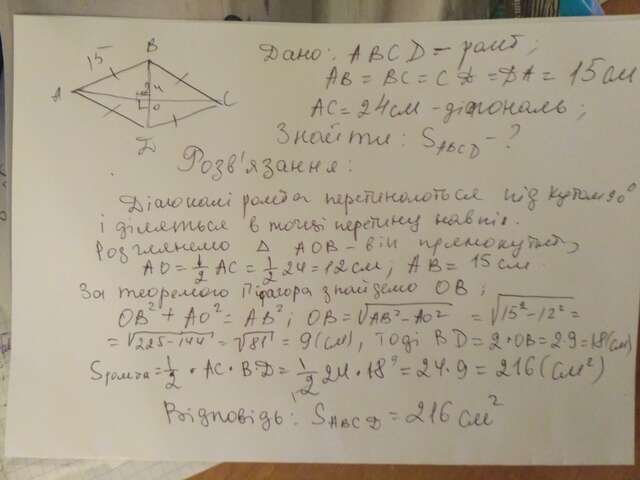 15 B
A 24 O C
D
Дано: ABCD - ромб;
AB = BC = CD = DA = 15 см
AC = 24 см - діагональ;
Знайти: S ABCD - ?
Розв'язання:
Діагоналі ромба перетинаються під кутом 90°
і діляться в точці перетину навпіл.
Розглянемо Δ AOB - він прямокутний,
AO = 1/2 AC = 1/2 24 = 12 см; AB = 15 см
За теоремою Піфагора знайдемо OB;
OB² + AO² = AB²; OB = √AB² - AO² = √15² - 12² =
= √225 - 144 = √81 = 9 (см), тоді BD = 2 · OB = 2·9 = 18 (см)
S ромба = 1/2 · AC · BD = 1/2 24 · 18 9 = 24 · 9 = 216 (см²)
Відповідь: S ABCD = 216 см²